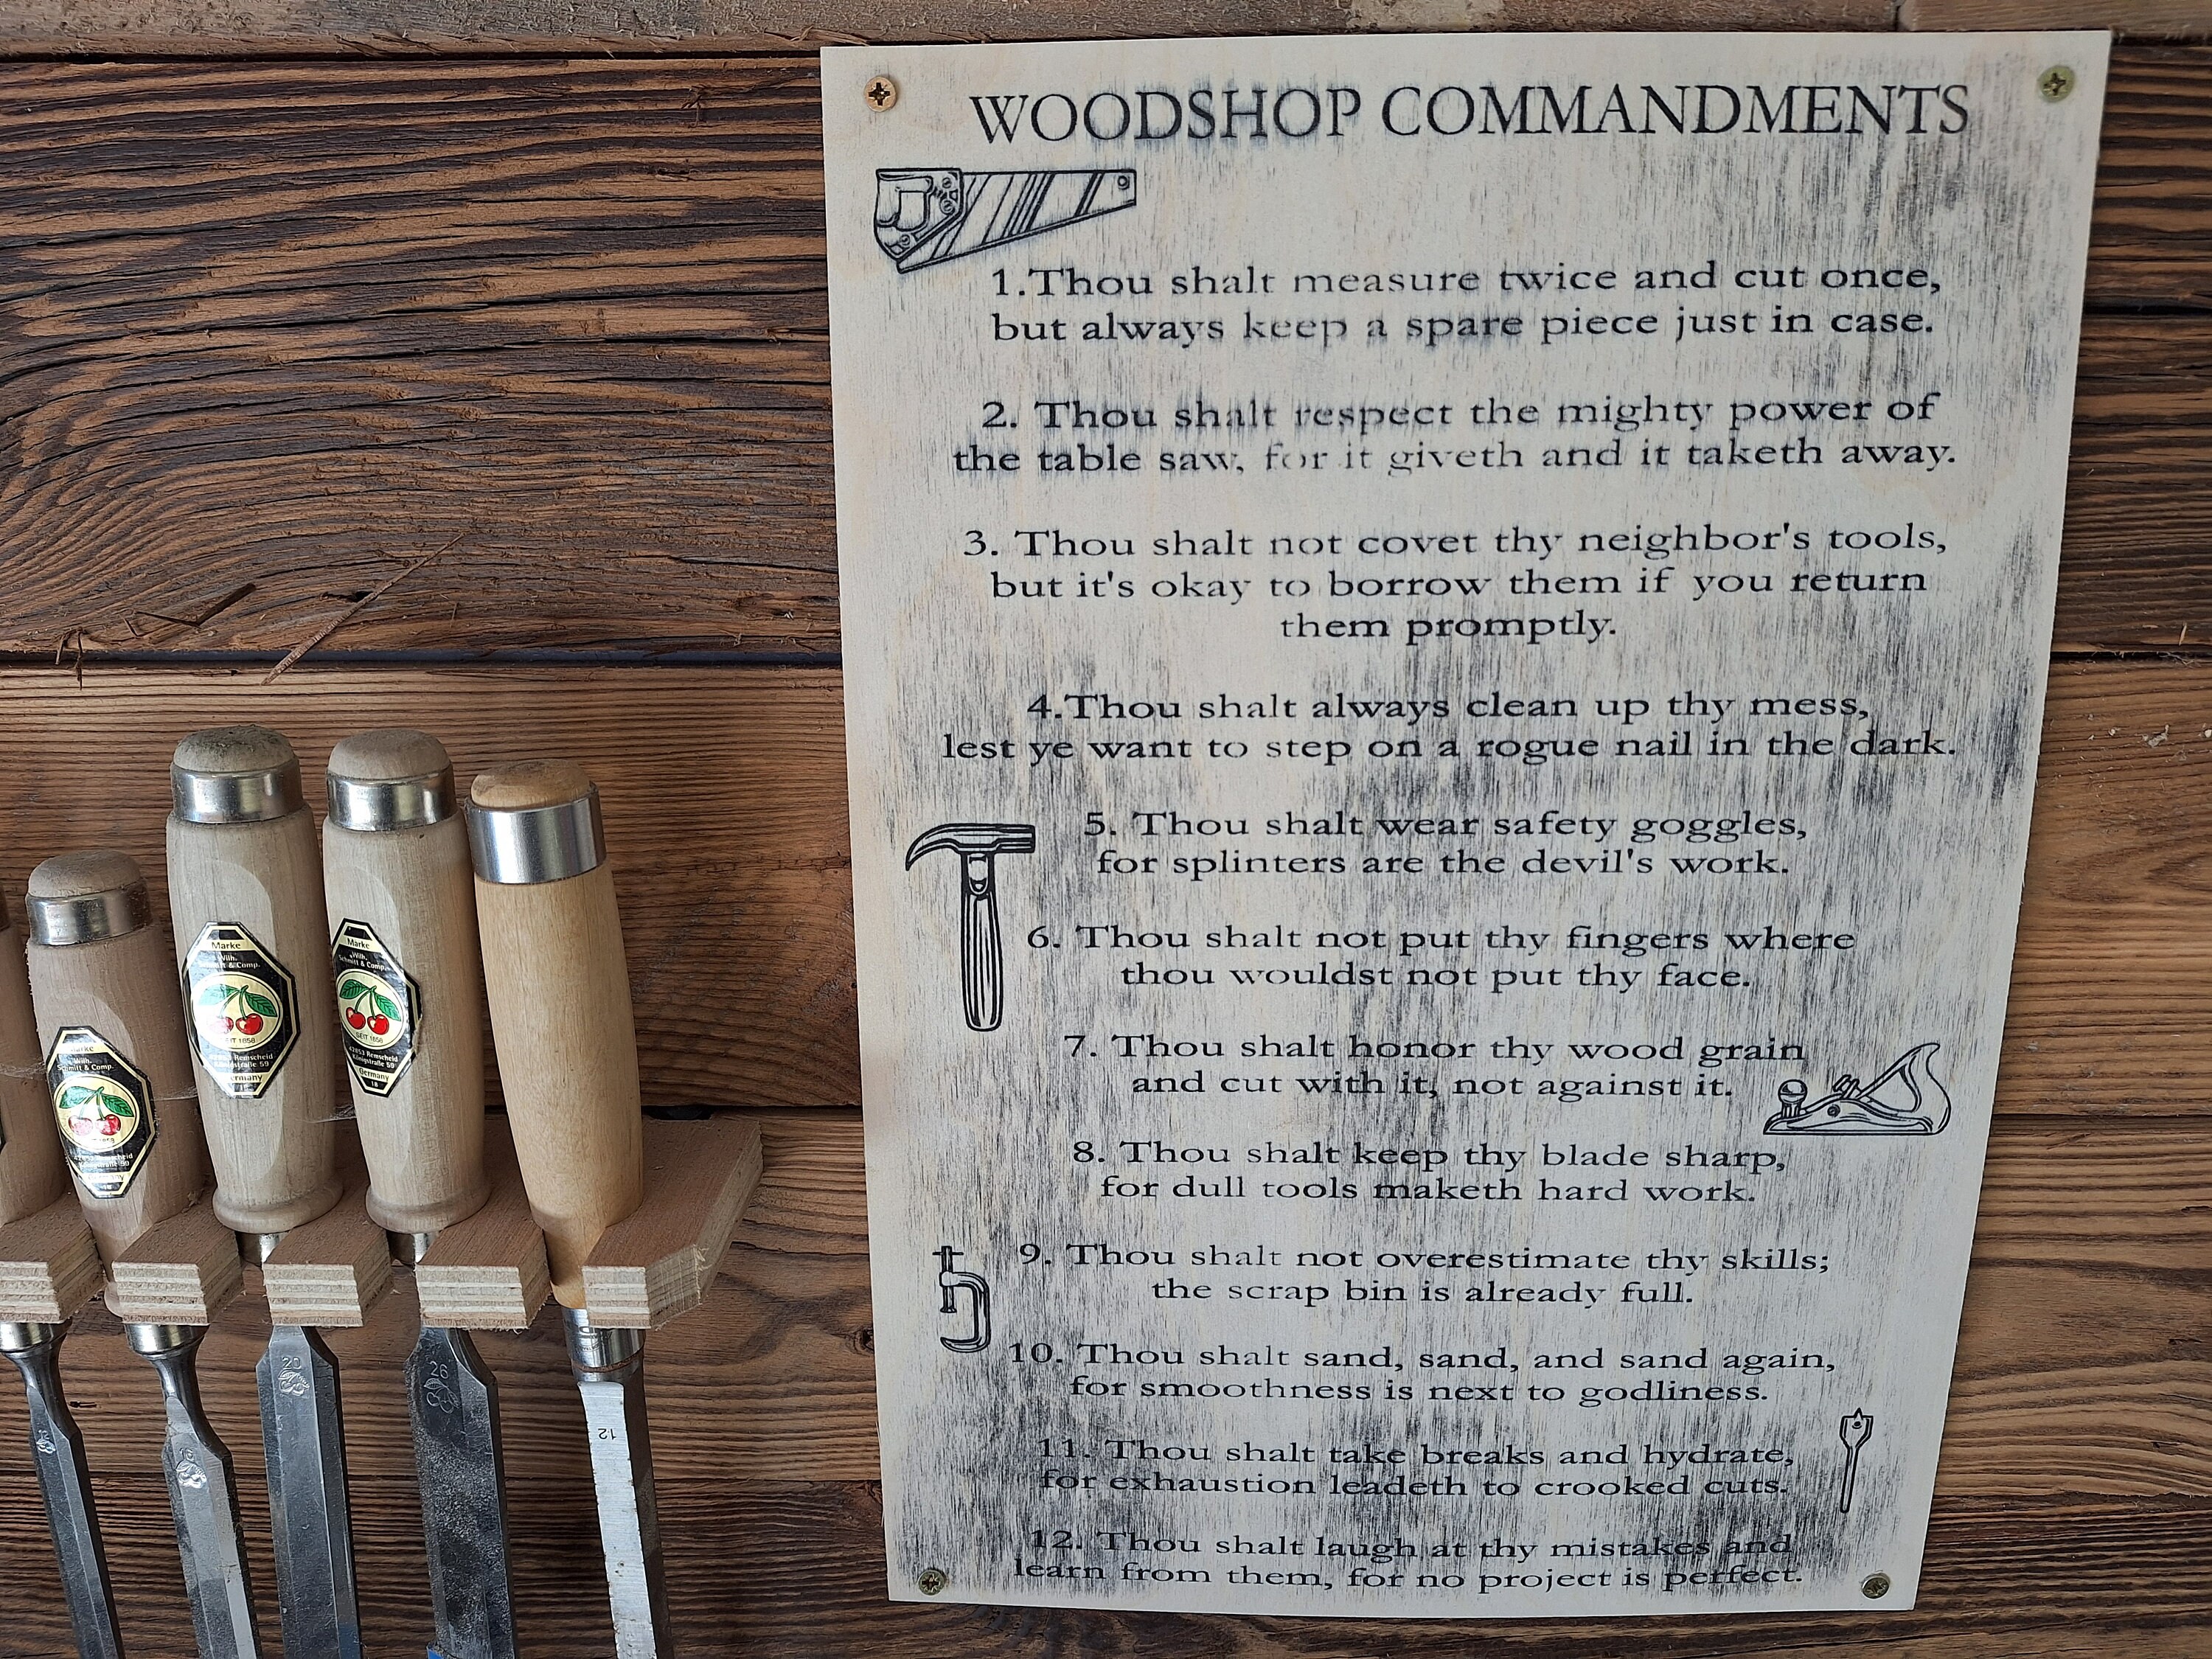 WOODSHOP COMMANDMENTS
1.Thou shalt measure twice and cut once,
but always keep a spare piece just in case.
2. Thou shalt respect the mighty power of
the table saw, for it giveth and it taketh away.
3. Thou shalt not covet thy neighbor's tools,
but it's okay to borrow them if you return
them promptly.
4.Thou shalt always clean up thy mess,
lest ye want to step on a rogue nail in the dark.
5. Thou shalt wear safety goggles,
for splinters are the devil's work.
6. Thou shalt not put thy fingers where
thou wouldst not put thy face.
7. Thou shalt honor thy wood grain
and cut with it, not against it.
8. Thou shalt keep thy blade sharp,
for dull tools maketh hard work.
9. Thou shalt not overestimate thy skills;
the scrap bin is already full.
10. Thou shalt sand, sand, and sand again,
for smoothness is next to godliness.
11. Thou shalt take breaks and hydrate,
for exhaustion leadeth to crooked cuts.
12. Thou shalt laugh at thy mistakes and
learn from them, for no project is perfect.
Marke
Wilh.
Schmitt & Comp.
Marke
Wilh.
Schmitt & Comp.
SEIT 1858
42853 Remscheid
Königstraße 59
Germany
18
Marke
Wilh.
Schmitt & Comp.
Remscheid
Königstraße 59
Germany
20
26
12